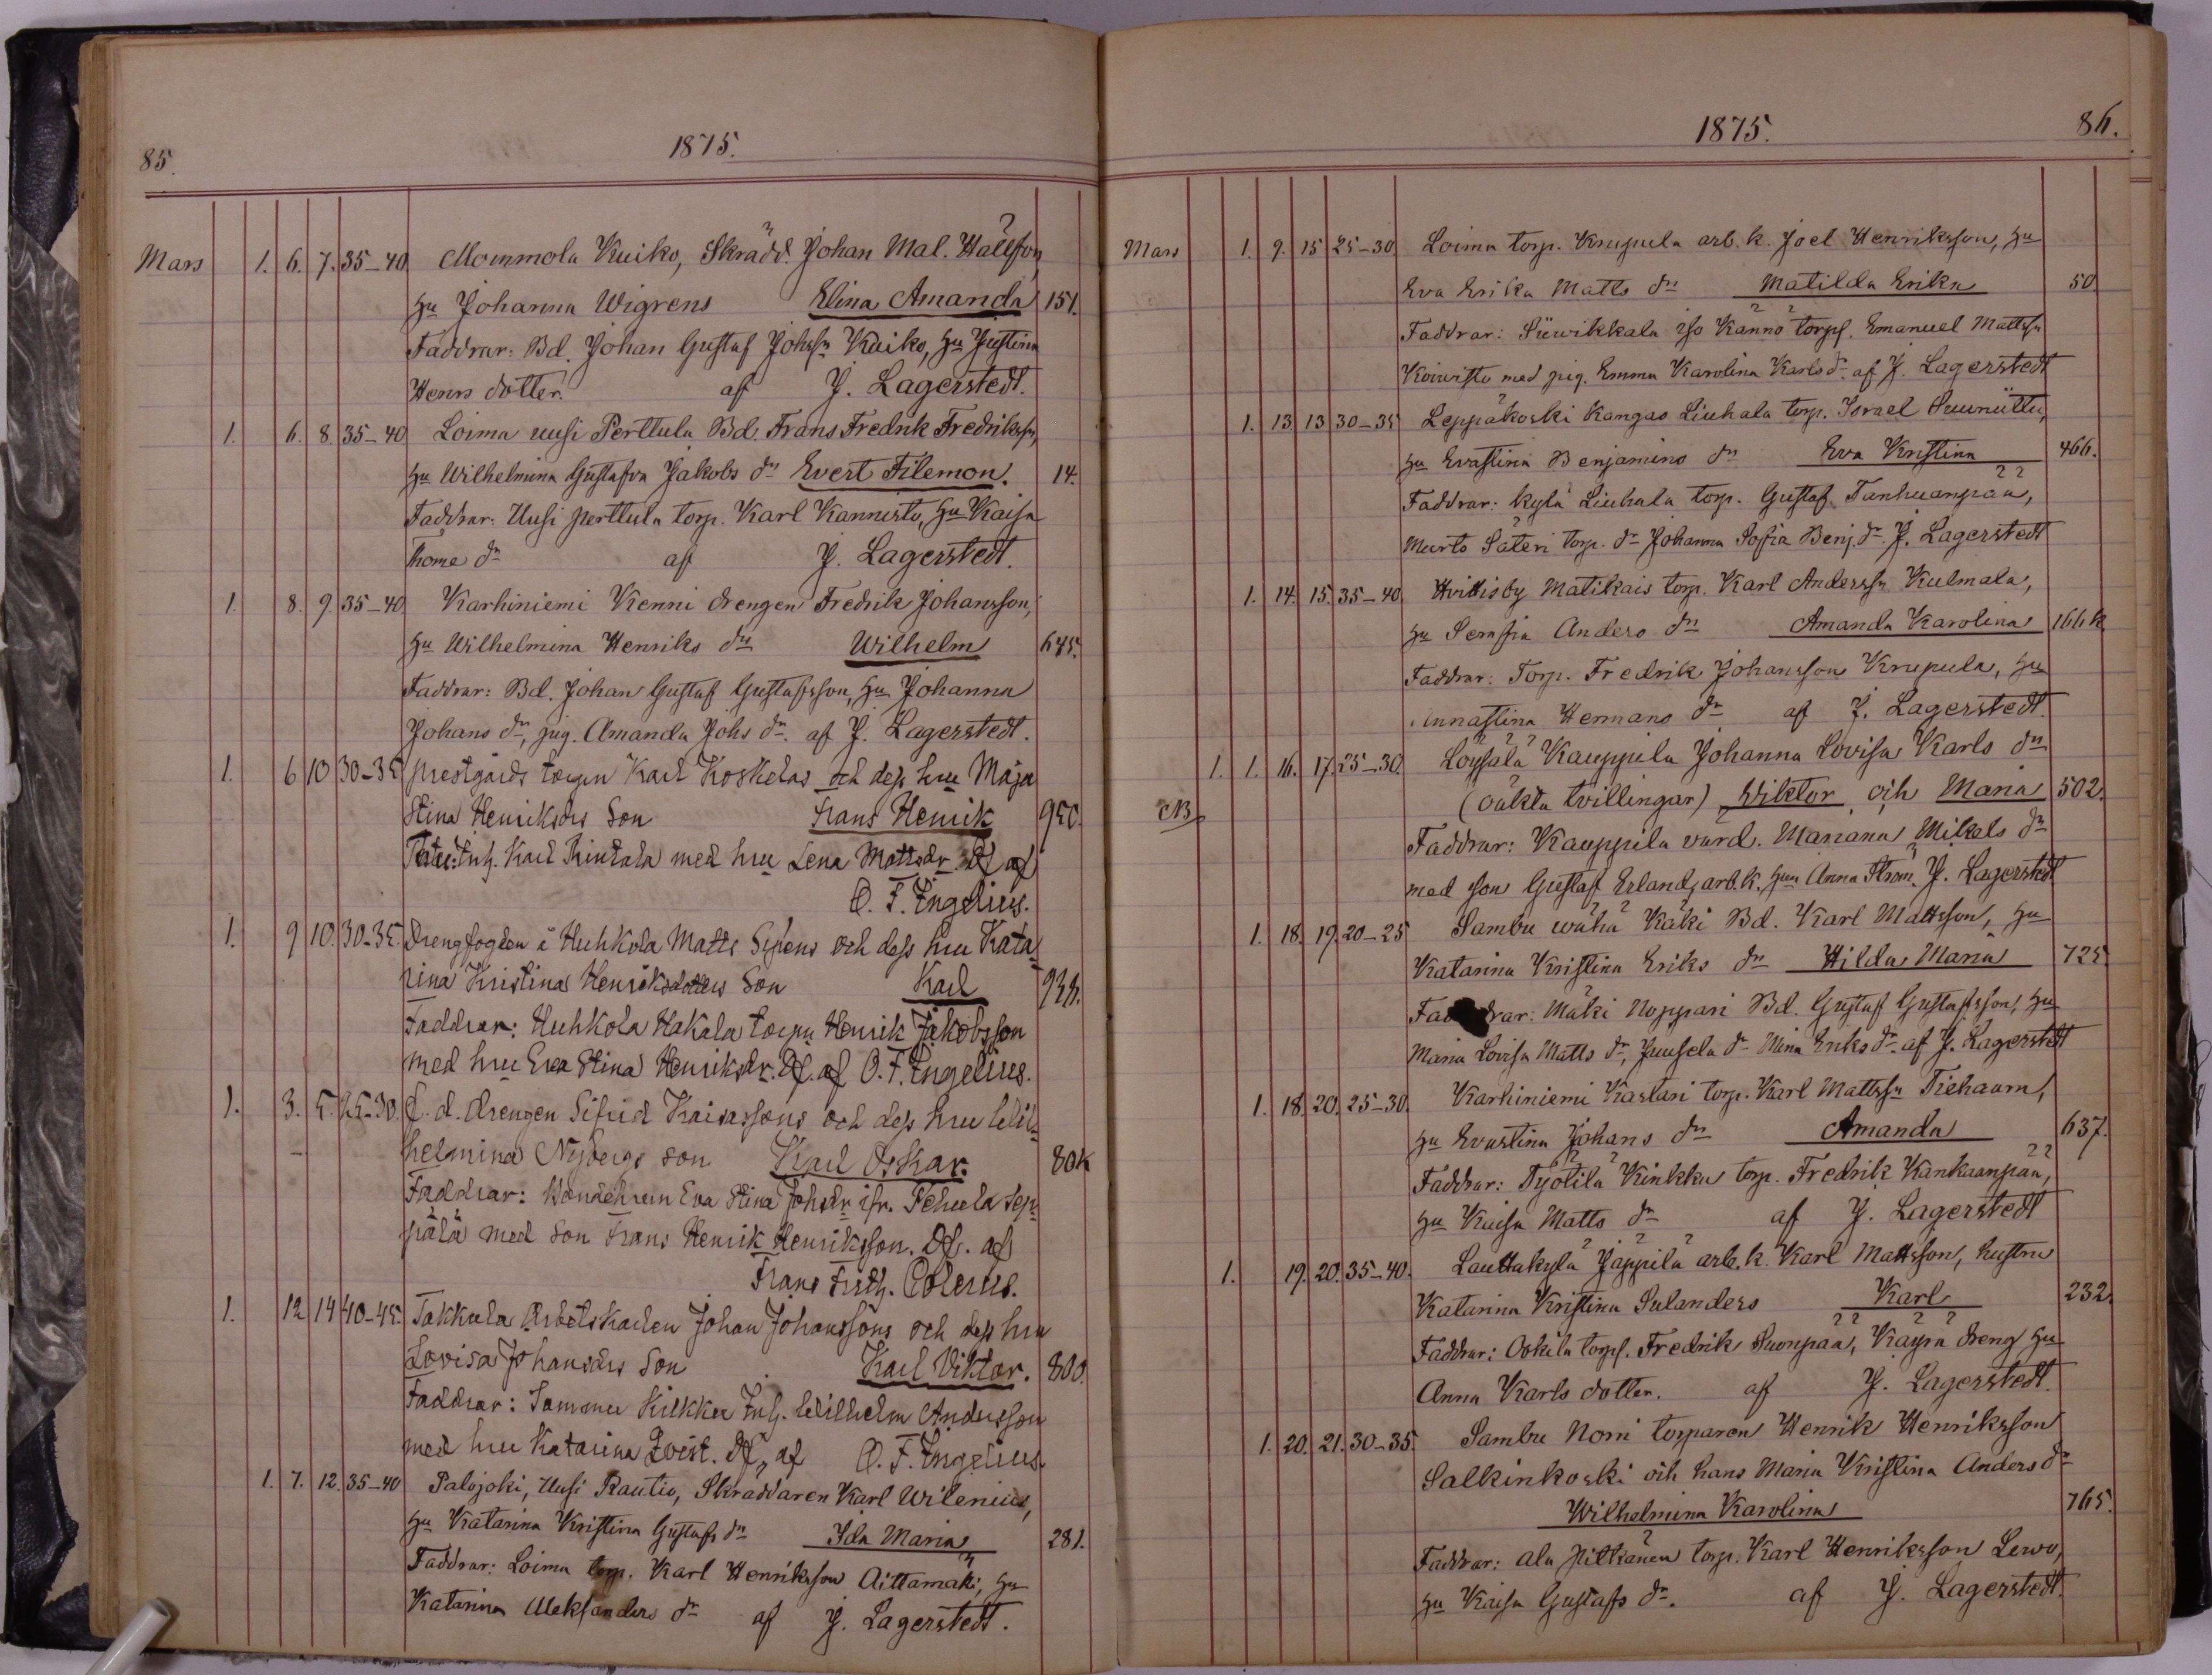 85.
1875.
Mars 1. 6. 7. 35-40 Mommola Kuiko, Skrädd. Johan Mal. Hällfors,
Hu Johanna Wigrens Elina Amanda 151.
Faddrar: Bd. Johan Gustaf Johssn Kuiko, Hu Justina
Henrs dotter. af J. Lagerstedt.
1. 6. 8. 35-40 Loima uusi Perttula Bd. Frans Fredrik Fredrikssn,
Hu Wilhelmina Gustafva Jakobs dr Evert Filemon. 14.
Faddrar: Uusi perttula torp. Karl Kannisto, Hu Kaisa
Thome dr af J. Lagerstedt.
1. 8. 9. 35-40 Karhiniemi Kenni drengen Fredrik Johansson,
Hu Wilhelmina Henriks dr Wilhelm 645.
Faddrar: Bd. Johan Gustaf Gustafsson, Hu Johanna
Johans dr, pig. Amanda Johs dr. af J. Lagerstedt.
1. 6 10 30-35 prestgårds torpn Karl Koskelas och dess hru Maja
Stina Henriksdrs Son Frans Henrik 950.
Karl Rintala med hru Lena Mattsdr. Df af
O. F. Ingelius.
1. 9 10. 30-35. Drengfogden å Huhkola Matts Sjöens och dess hru Kata-
rina Kristina Henriksdotters Son Karl
Faddrar: Huhkola Hakala torpn Henrik Jakobsson
med hru Eva Stina Henriksdr. Df. af O. F. Ingelius.
1. 3. 5. 25-30. F. d. drengen Sifrid Kaisassons och dess hru Wil-
helmina Nybergs son Karl Oskar. 80k
Faddrar: Bondehrun Eva Stina Johsdr ifr. Pehula Sep-
pälä med son Frans Henrik Henriksson. Df. af
Frans Fredr.
1. 12 14 40-45. Takkula Arbetskarlen Johan Johanssons och dess hru
Lovisa Johansdrs Son Karl Viktor. 800.
Faddrar: Sammu Kilkku Inh. Wilhelm Andersson
med hru Katarina Qvist. Df. af O. F. Ingelius
1. 7. 12. 35-40 Palojoki, Uusi Rautio, Skraddaren Karl Wilenius,
Hu Katarina Kristina Gustafs dr Ida Maria 281.
Faddrar: Loima torp. Karl Henriksson Aittamäki, Hu
Katarina Aleksanders dr af J. Lagerstedt.
1875.
86.
Mars 1. 9. 15 25-30 Loima torp. Krupula arb. k. Joel Henriksson, Hu
Eva Erika Matts dr Matilda Erika 50
Faddrar: Siuvikkala iso Kännö torps. Emanuel Mattssn
Koivisto med pig. Emma Karolina Karls dr. af J. Lagerstedt
1. 13 13 30-35 Leppäkoski Kangas Liuhala torp. Israel Suuniittu,
Hu Evastina Benjamins dr Eva Kristina 466.
Faddrar: Kylä Liuhala torp. Gustaf Tanhuanpää,
Murto Säteri torp. dr Johanna Sofia Benj. dr. J. Lagerstedt
1. 14. 15. 35-40 Hvittisby Matikais torp. Karl Anderssn Kulmala,
Hu Serafia Anders dr Amanda Karolina 166k
Faddrar: Torp. Fredrik Johansson Krupula, Hu
Annastina Hermans dr af J. Lagerstedt.
1. 1. 16. 17. 25-30. Loysälä Kauppila Johanna Lovisa Karls dr
NB (oäkta tvillingar) Wiktor och Maria 502.
Faddrar: Kauppila vard. Mariana Mikels dr
med son Gustaf Erland, arb. k. Hu Anna Ström. J. Lagerstedt
1. 18. 19. 20-25 Sambu wähä Käki Bd. Karl Mattsson, Hu
Katarina Kristina Eriks dr Hilda Maria 725.
Faddrar: Mäki Noppari Bd. Gustaf Gustafsson, Hu
Maria Lovisa Matts dr, Juusela dr Mina Eriks dr. af J. Lagerstedt
1. 18. 20. 25-30. Karhiniemi Kastari torp. Karl Mattssn Tiehaara,
Hu Evastina Johans dr Amanda 637.
Faddrar: Työtilä Kinkku torp. Fredrik Kankaanpää,
Hu Kaisa Matts dr af J. Lagerstedt
1. 19. 20. 35-40. Lauttakylä Jäppilä arb. k. Karl Mattsson, hustru
Katarina Kristina Sulanders Karl 232.
Faddrar: Anna Oskila torps. Fredrik Suonpää, Käyrä dreng Hu
Anna Karls dotter. af J. Lagerstedt.
1. 20. 21. 30-35. Sambu Noni torparen Henrik Henriksson
Salkinkoski och hans Maria Kristina Anders dr
Wilhelmina Karolina 765.
Faddrar: ala pitkänen torp. Karl Henriksson Lewo,
Hu Kaisa Gustafs dr. af J. Lagerstedt.